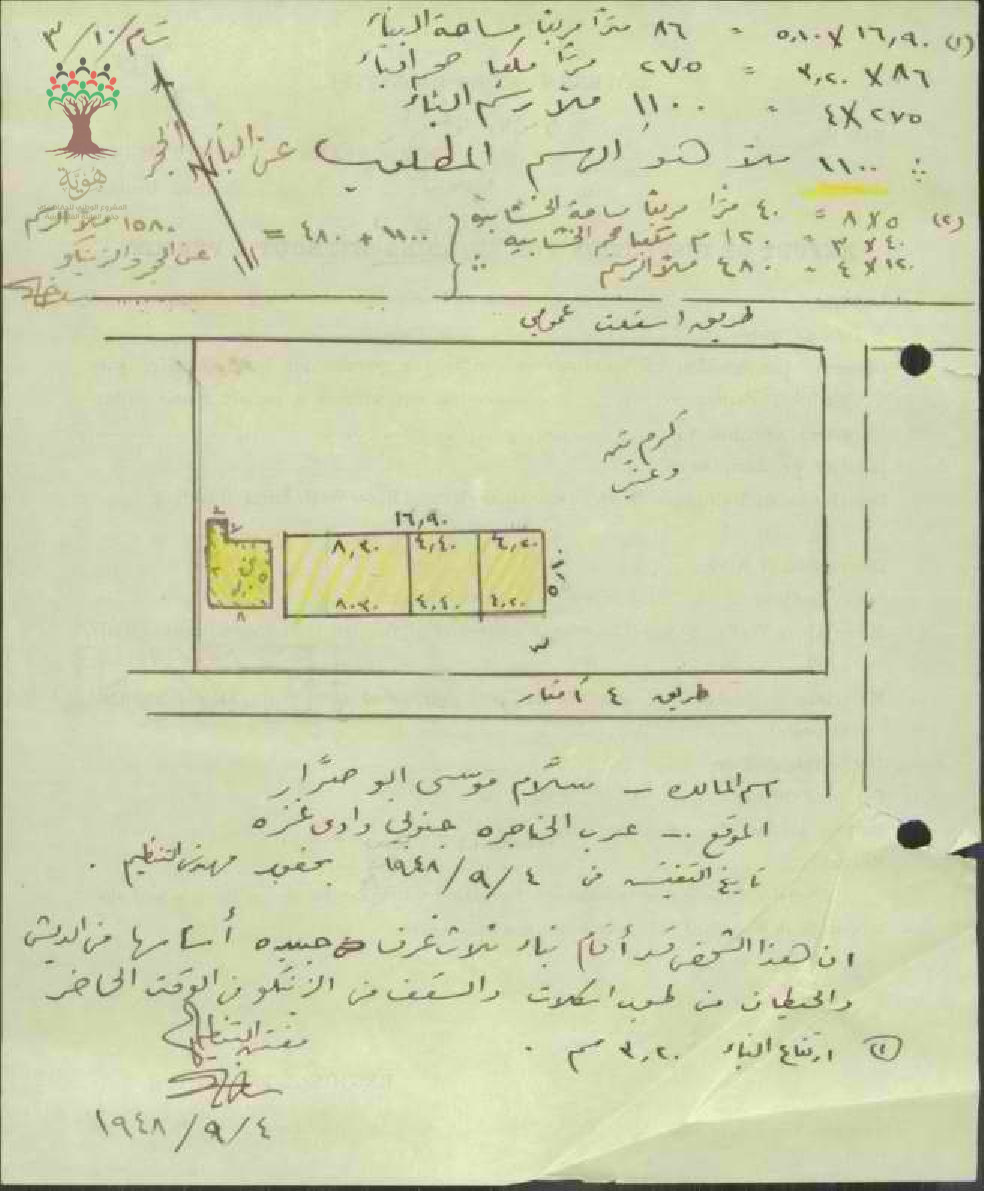 (١) ١٦,٩٠ X ٥,١٠ = ٨٦ متراً مربعاً مساحة البناء
٨٦ X ٣,٢٠ = ٢٧٥ متراً مكعباً حجم البناء
٢٧٥ X ٤ = ١١٠٠ ملاً رسم البناء
∴ ١١٠٠ ملاً هو الرسم المطلوب عن البناء الحجر
(٢) ٥ X ٨ = ٤٠ متراً مربعاً مساحة الخشابية
٤٠ X ٣ = ١٢٠ م مكعباً حجم الخشابية
١٢٠ X ٤ = ٤٨٠ ملاً الرسم
∴ ١١٠٠ + ٤٨٠ =
١٥٨٠ ملاً الرسم
عن الحجر والزنكو
هوية
طريق اسفلت عمومي
كرم تين
وعنب
١٦,٩٠
٨,٣٠ ٤,٤٠ ٤,٢٠
٥,١٠
٨,٣٠ ٤,٤٠ ٤,٢٠
٨
طريق ٤ أمتار
اسم المالك - سلّام موسى ابو ضرّار
الموقع - عرب الحناجره جنوبي وادي غزه
تاريخ التفتيش في ٤/٩/١٩٤٨ بحضور مهندس التنظيم .
ان هذا الشخص قد أقام بناء ثلاث غرف جديده أساسها من الدبش
والحيطان من طوب اسكلات والسقف من الزنكو في الوقت الحاضر
(١) ارتفاع البناء ٣,٢٠ سم .
مفتش التنظيم
٤/٩/١٩٤٨